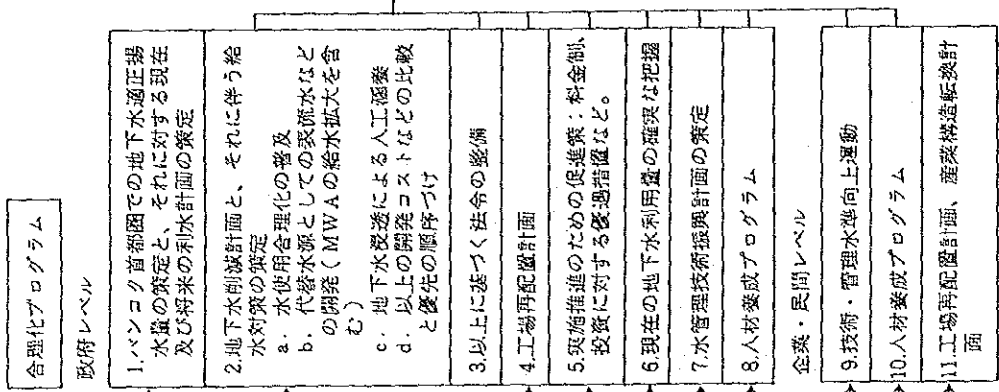 合理化プログラム
政府レベル
1.バンコク首都圏での地下水適正揚
水量の策定と、それに対する現在
及び将来の利水計画の策定
2.地下水削減計画と、それに伴う給
水対策の策定
a. 水使用合理化の普及
b. 代替水源としての表流水など
の開発(MWAの給水拡大を含
む)
c. 地下水浸透による人工涵養
d. 以上の開発コストなどの比較
と優先の順序づけ
3.以上に基づく法令の整備
4.工場再配置計画
5.実施推進のための促進策:料金制、
投資に対する優遇措置など。
6.現在の地下水利用量の確実な把握
7.水管理技術振興計画の策定
8.人材養成プログラム
企業・民間レベル
9.技術・管理水準向上運動
10.人材養成プログラム
11.工場再配置計画、産業構造転換計
画